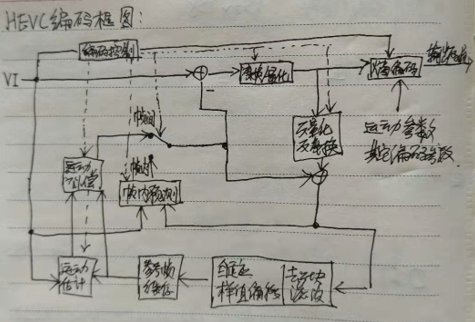 HEVC编码框图:
编码控制
输出码流
VI
变换量化
熵编码
帧间
反量化
反变换
运动参数
其它编码参数
运动
补偿
帧内
帧内预测
运动
估计
参考帧
缓存
自适应
样值偏移
去方块
滤波